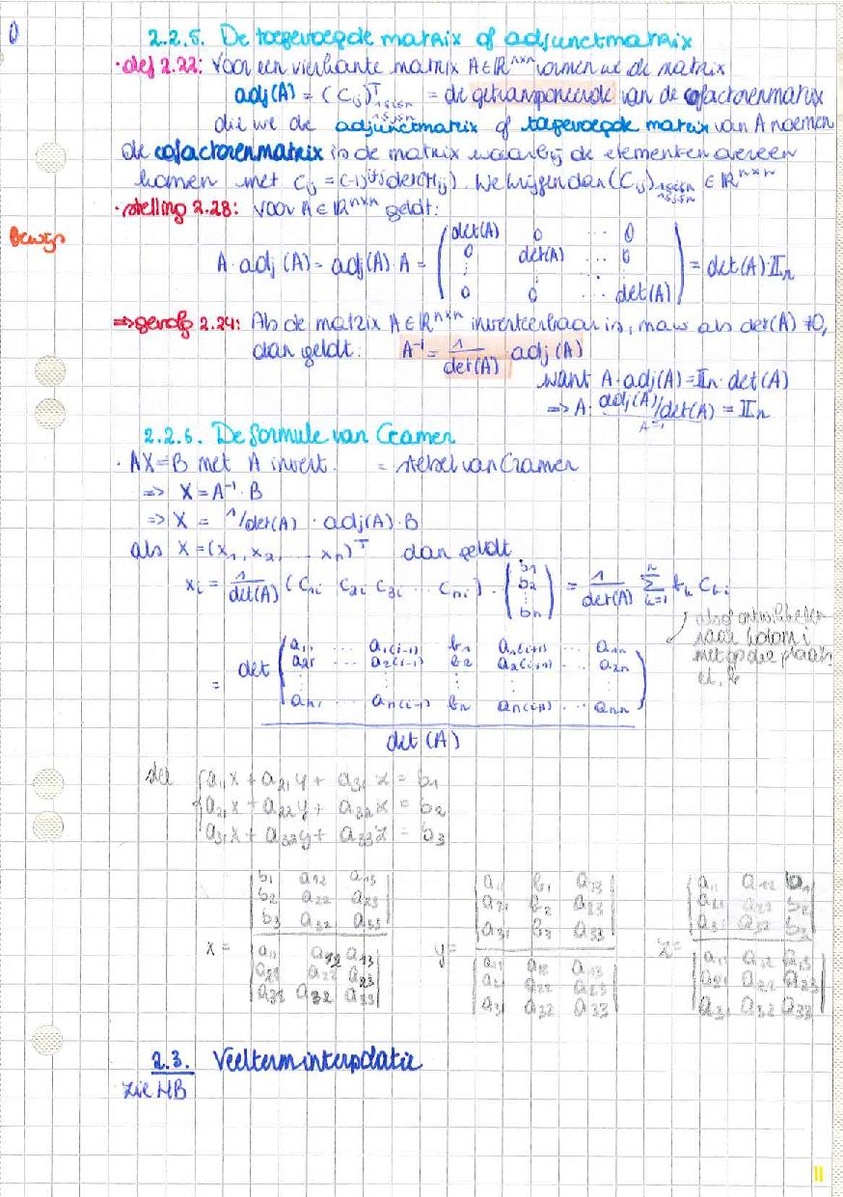 2.2.5. De toegevoegde matrix of adjunctmatrix
· def 2.22: Voor een vierkante matrix A∈ℝⁿˣⁿ vormen we de matrix
adj(A) = (Cᵢⱼ)ᵀ 1≤i≤n 1≤j≤n = de getransponeerde van de cofactorenmatrix
die we de adjunctmatrix of toegevoegde matrix van A noemen
de cofactorenmatrix is de matrix waarbij de elementen overeen
komen met Cᵢⱼ = (-1)ⁱ⁺ʲ det(Mᵢⱼ). We krijgen dan (Cᵢⱼ) 1≤i≤n 1≤j≤n ∈ ℝⁿˣⁿ
· stelling 2.23: voor A∈ℝⁿˣⁿ geldt:
Bewijs
A·adj(A) = adj(A)·A = ( det(A) 0 ... 0
0 det(A) ... 0
⋮ ⋮ ⋮
0 0 ... det(A) ) = det(A)·𝕀n
⇒ gevolg 2.24: Als de matrix A∈ℝⁿˣⁿ inverteerbaar is, maw als det(A) ≠0,
dan geldt: A⁻¹ = 1/det(A) · adj(A)
want A·adj(A) = 𝕀n·det(A)
⇒ A· adj(A)/det(A) = 𝕀n
A⁻¹
2.2.6. De formule van Cramer
· AX=B met A invert. = stelsel van Cramer
⇒ X = A⁻¹·B
⇒ X = 1/det(A) · adj(A)·B
als X=(x₁, x₂, ... xn)ᵀ dan geldt
xᵢ = 1/det(A) (C₁ᵢ C₂ᵢ C₃ᵢ ... Cnᵢ) · ( b₁ b₂ ⋮ bn ) = 1/det(A) Σ bₖ Cₖᵢ
naar kolom i
met op die plaats
= det ( a₁₁ ... a₁(i-1) b₁ a₁(i+1) ... a₁n
a₂₁ ... a₂(i-1) b₂ a₂(i+1) ... a₂n
⋮ ⋮ ⋮ ⋮
an₁ ... an(i-1) bn an(i+1) ... ann )
det(A)
a₁₁x + a₂₁y + a₃₁z = b₁
a₂₁x + a₂₂y + a₃₂z = b₂
a₃₁x + a₃₂y + a₃₃z = b₃
x = | b₁ a₁₂ a₁₃
b₂ a₂₂ a₂₃
b₃ a₃₂ a₃₃ |
| a₁₁ a₁₂ a₁₃
a₂₁ a₂₂ a₂₃
a₃₁ a₃₂ a₃₃ |
y = | a₁₁ b₁ a₁₃
a₂₁ b₂ a₂₃
a₃₁ b₃ a₃₃ |
| a₁₁ a₁₂ a₁₃
a₂₁ a₂₂ a₂₃
a₃₁ a₃₂ a₃₃ |
z = | a₁₁ a₁₂ b₁
a₂₁ a₂₂ b₂
a₃₁ a₃₂ b₃ |
| a₁₁ a₁₂ a₁₃
a₂₁ a₂₂ a₂₃
a₃₁ a₃₂ a₃₃ |
2.3. Veelterminterpolatie
zie HB
11